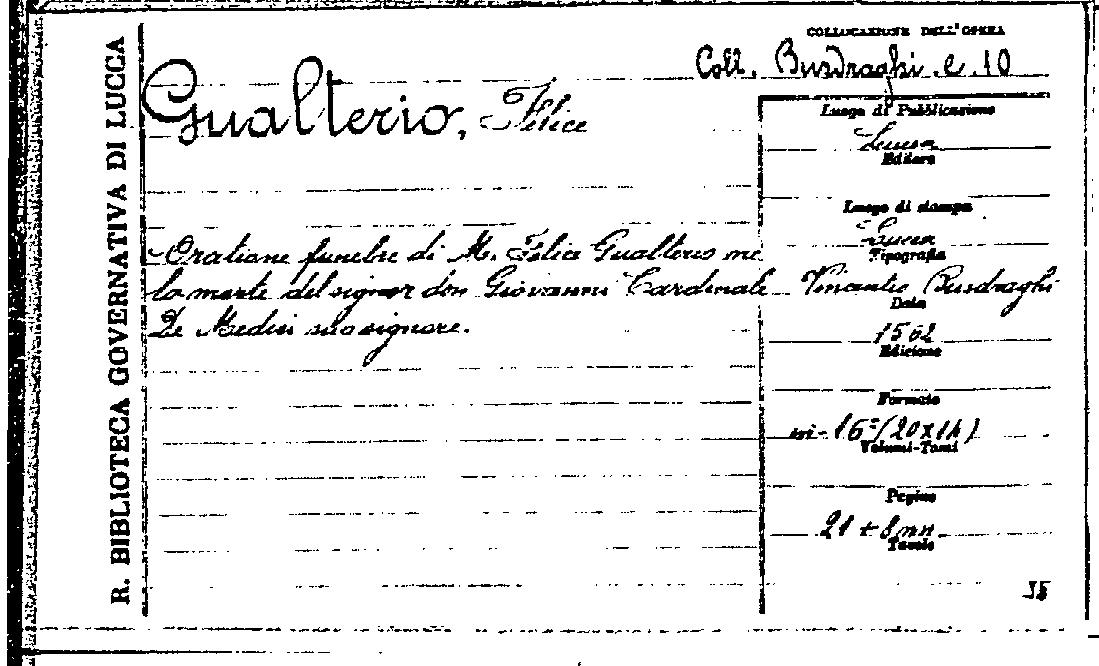 R. BIBLIOTECA GOVERNATIVA DI LUCCA
COLLOCAZIONE DELL'OPERA
Coll. Busdraghi. e. 10
Gualterio, Felice
Oratione funebre di M. Felice Gualterio ne
la morte del signor don Giovanni Cardinale
De Medici suo signore.
Luogo di Pubblicazione
Lucca
Editore
Luogo di stampa
Lucca
Tipografia
Vincentio Busdraghi
Data
1562
Edizione
Formato
in-16º (20x14)
Volumi-Tomi
Pagine
21 + 8 nn.
Tavole